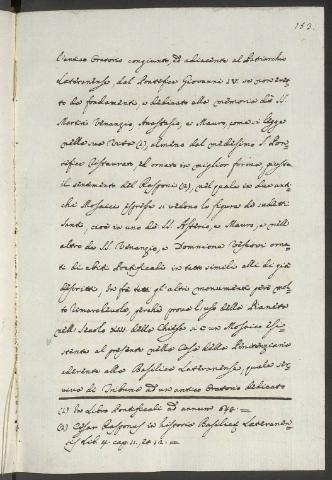 153.
l'antico Oratorio congiunto, ed adiacente al Patriarchio
Lateranense, dal Pontefice Giovanni IV se non eret-
to da' fondamenti, e dedicato alla memoria dei SS.
Martiri Venanzio, Anastasio, e Mauro, come si legge
nella sua Vita (1), almeno dal medesimo S. Pon-
tefice restaurato, ed ornato in miglior forma, giusta
il sentimento del Rasponi (2), nel quale in due anti-
chi Mosaici espresse si vedono le figure de' suddetti
Santi, cioè in uno dei SS. Asterio, e Mauro, e nell'
altro de SS. Venanzio, e Domnione Vescovi orna-
ti di abiti Pontificali in tutto simili alli di già
descritti. Infatti gli altri monumenti però mol-
to Venerabile, perchè prova l'uso della Pianeta
nell Secolo XIII. della Chiesa si è un Mosaico esi-
stente al presente nella Casa della Penitenziaria
aderente alla Basilica Lateranense, quale ser-
viva di Tribuna ad un antico Oratorio dedicato
(1) In Libro Pontificali ad annum 648.
(2) Cæsar Rasponus in historia Basilicæ Lateranen-
sis Lib. 4. cap. 11. et 12.